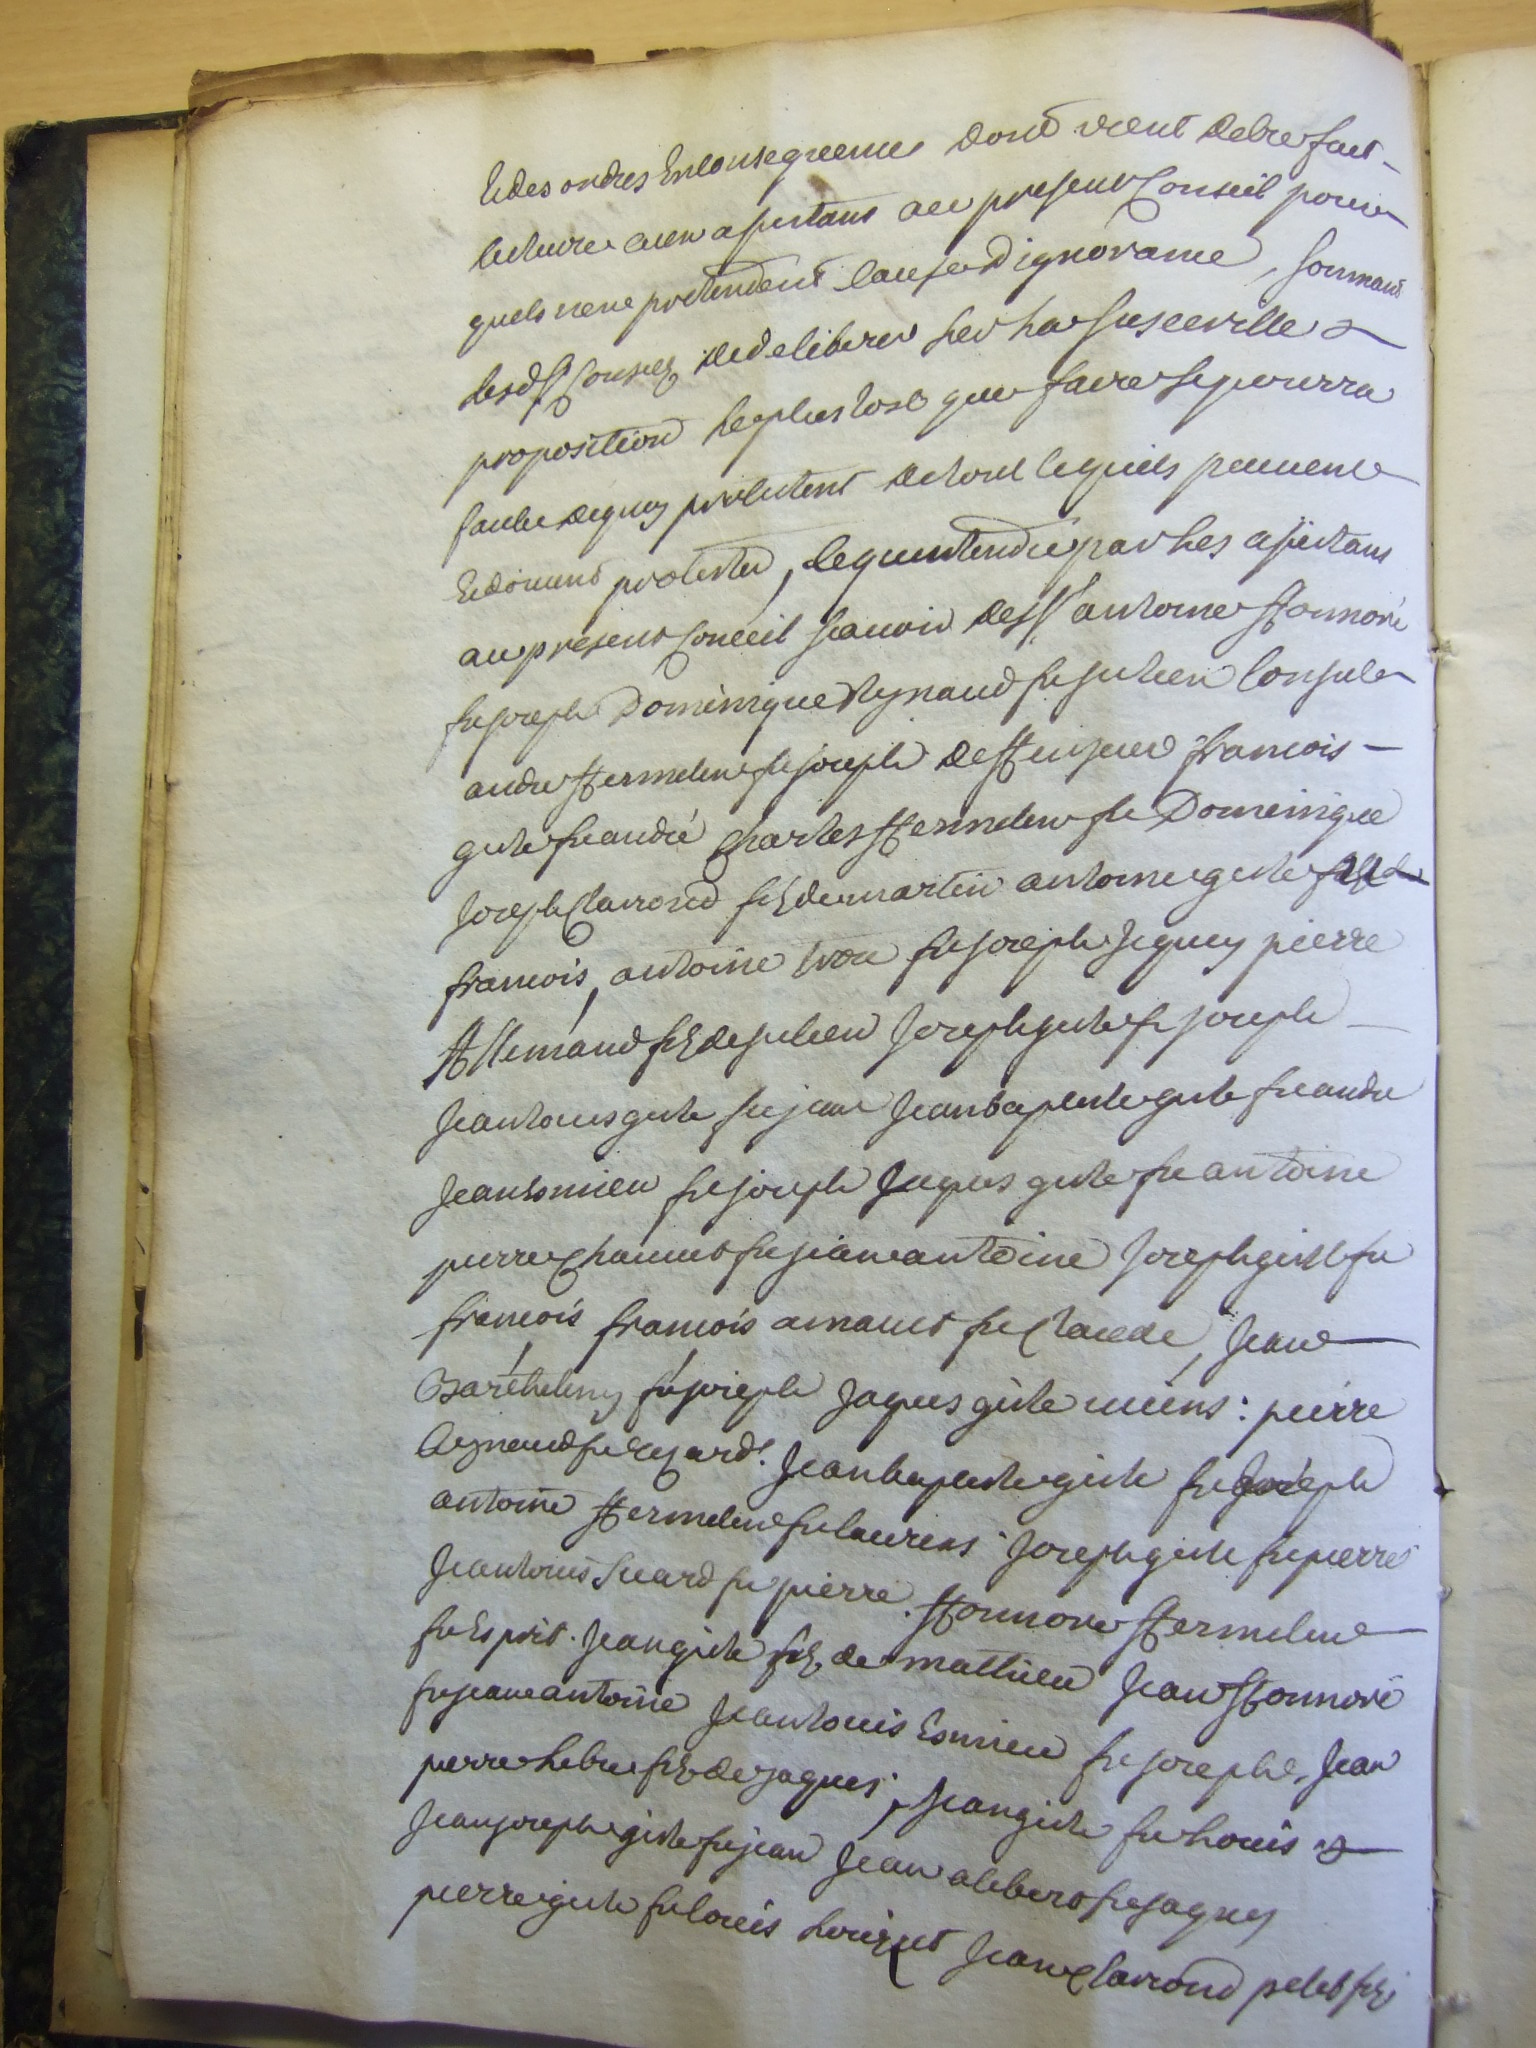 Et des ordres En Consequence dont vient d'etre fait
lecture aux assistans au present Conseil pour
quels nen pretendent cause d'ignorance, sommant
lesd srs Consuls de deliberer sur la susd
proposition le plus tost que faire se pourra
faute de quoy protestent de tout ce quils peuvent
Et doivent protester, ce quentendu par les assistans
au present Conceil scavoir de srs antoine honnoré
fu joseph Dominique Reynaud fu Julien Consuls
andre hermelin fu joseph deffenseur francois
giste fu andré Charles hermelin fu Dominique
joseph Clairond fils de martin antoine giste
francois, antoine fu joseph jquey pierre
Allemand fils de julien joseph giste fu joseph
jean louis giste fu jean jean baptiste giste fu andre
jean Esmieu fu joseph jaques giste fu antoine
pierre Chauvet fu jean antoine joseph giste fu
francois francois arnaud fu Claude, jean
Barthelemy fu joseph jaques giste : pierre
Reynaud fu jean baptiste giste fu joseph
antoine hermelin fu laurens joseph giste fu pierre
jean louis Suard fu pierre. honnoré hermelin
fu Esprit. jean giste fils de mathieu jean honnoré
fu jean antoine jean louis Esmieu fu joseph, jean
pierre fils de jaques, jean giste fu louis &
jean joseph giste fu jean jean alibert fu jaques
pierre giste fu louis jean Clairond fils